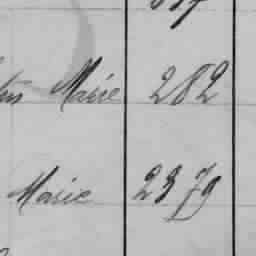 Marie 282
Marie 2379